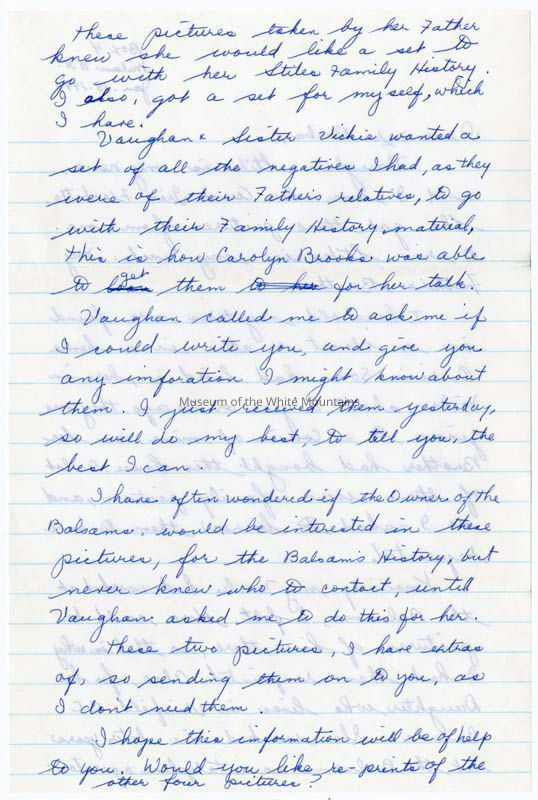 These pictures taken by her Father
knew she would like a set to
go with her Stiles Family History.
I also, got a set for myself, which
I have.
Vaughan & Sister Vickie wanted a
set of all the negatives I had, as they
were of their Father's relatives, to go
with their Family History, material,
this is how Carolyn Brooks was able
get
to loan them to her for her talk.
Vaughan called me to ask me if
I could write you, and give you
any imforation I might know about
them. I just received them yesterday,
Museum of the White Mountains
so will do my best, to tell you, the
best I can.
I have often wondered if the Owner of the
Balsams. would be interested in these
pictures, for the Balsam's History, but
never knew who to contact, until
Vaughan. asked me to do this for her.
These two pictures, I have extras
of, so sending them on to you, as
I dont need them.
I hope this imformation will be of help
to you. Would you like re-prints of the
other four pictures?